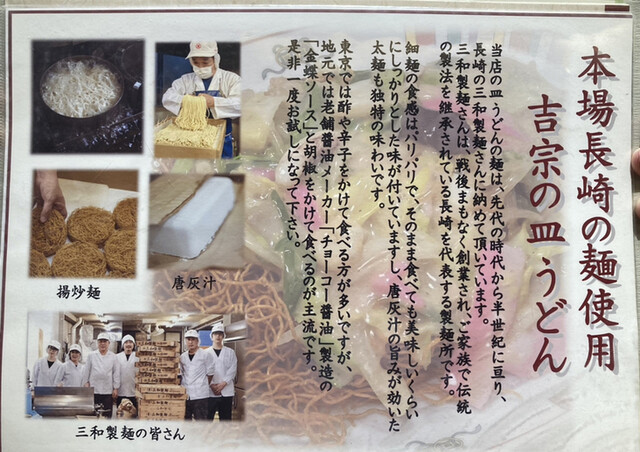 本場長崎の麺使用
吉宗の皿うどん
当店の皿うどんの麺は、先代の時代から半世紀に亘り、
長崎の三和製麺さんに納めて頂いています。
三和製麺さんは、戦後まもなく創業され、ご家族で伝統
の製法を継承されている長崎を代表する製麺所です。
細麺の食感はパリパリで、そのまま食べても美味しいくらい
にしっかりとした味が付いていますし、唐灰汁の旨みが効いた
太麺も独特の味わいです。
東京では酢や辛子をかけて食べる方が多いですが、
地元では老舗醤油メーカー「チョーコー醤油」製造の
「金蝶ソース」と胡椒をかけて食べるのが主流です。
是非一度お試しになって下さい。
揚炒麺
唐灰汁
三和製麺の皆さん